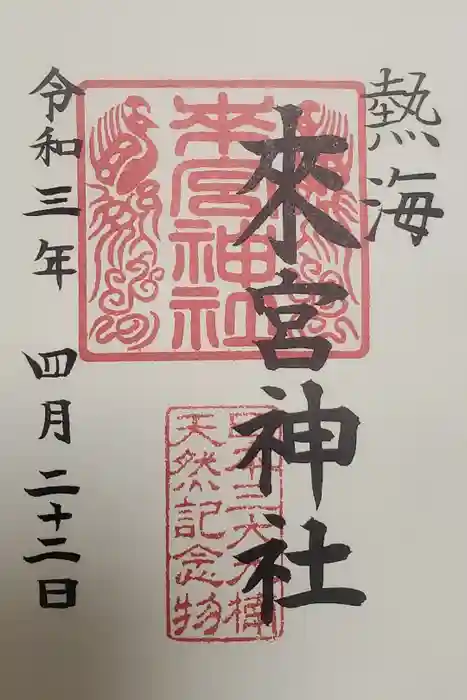 熱海
來宮神社
来宮神社
天然記念物
令和三年 四月二十二日